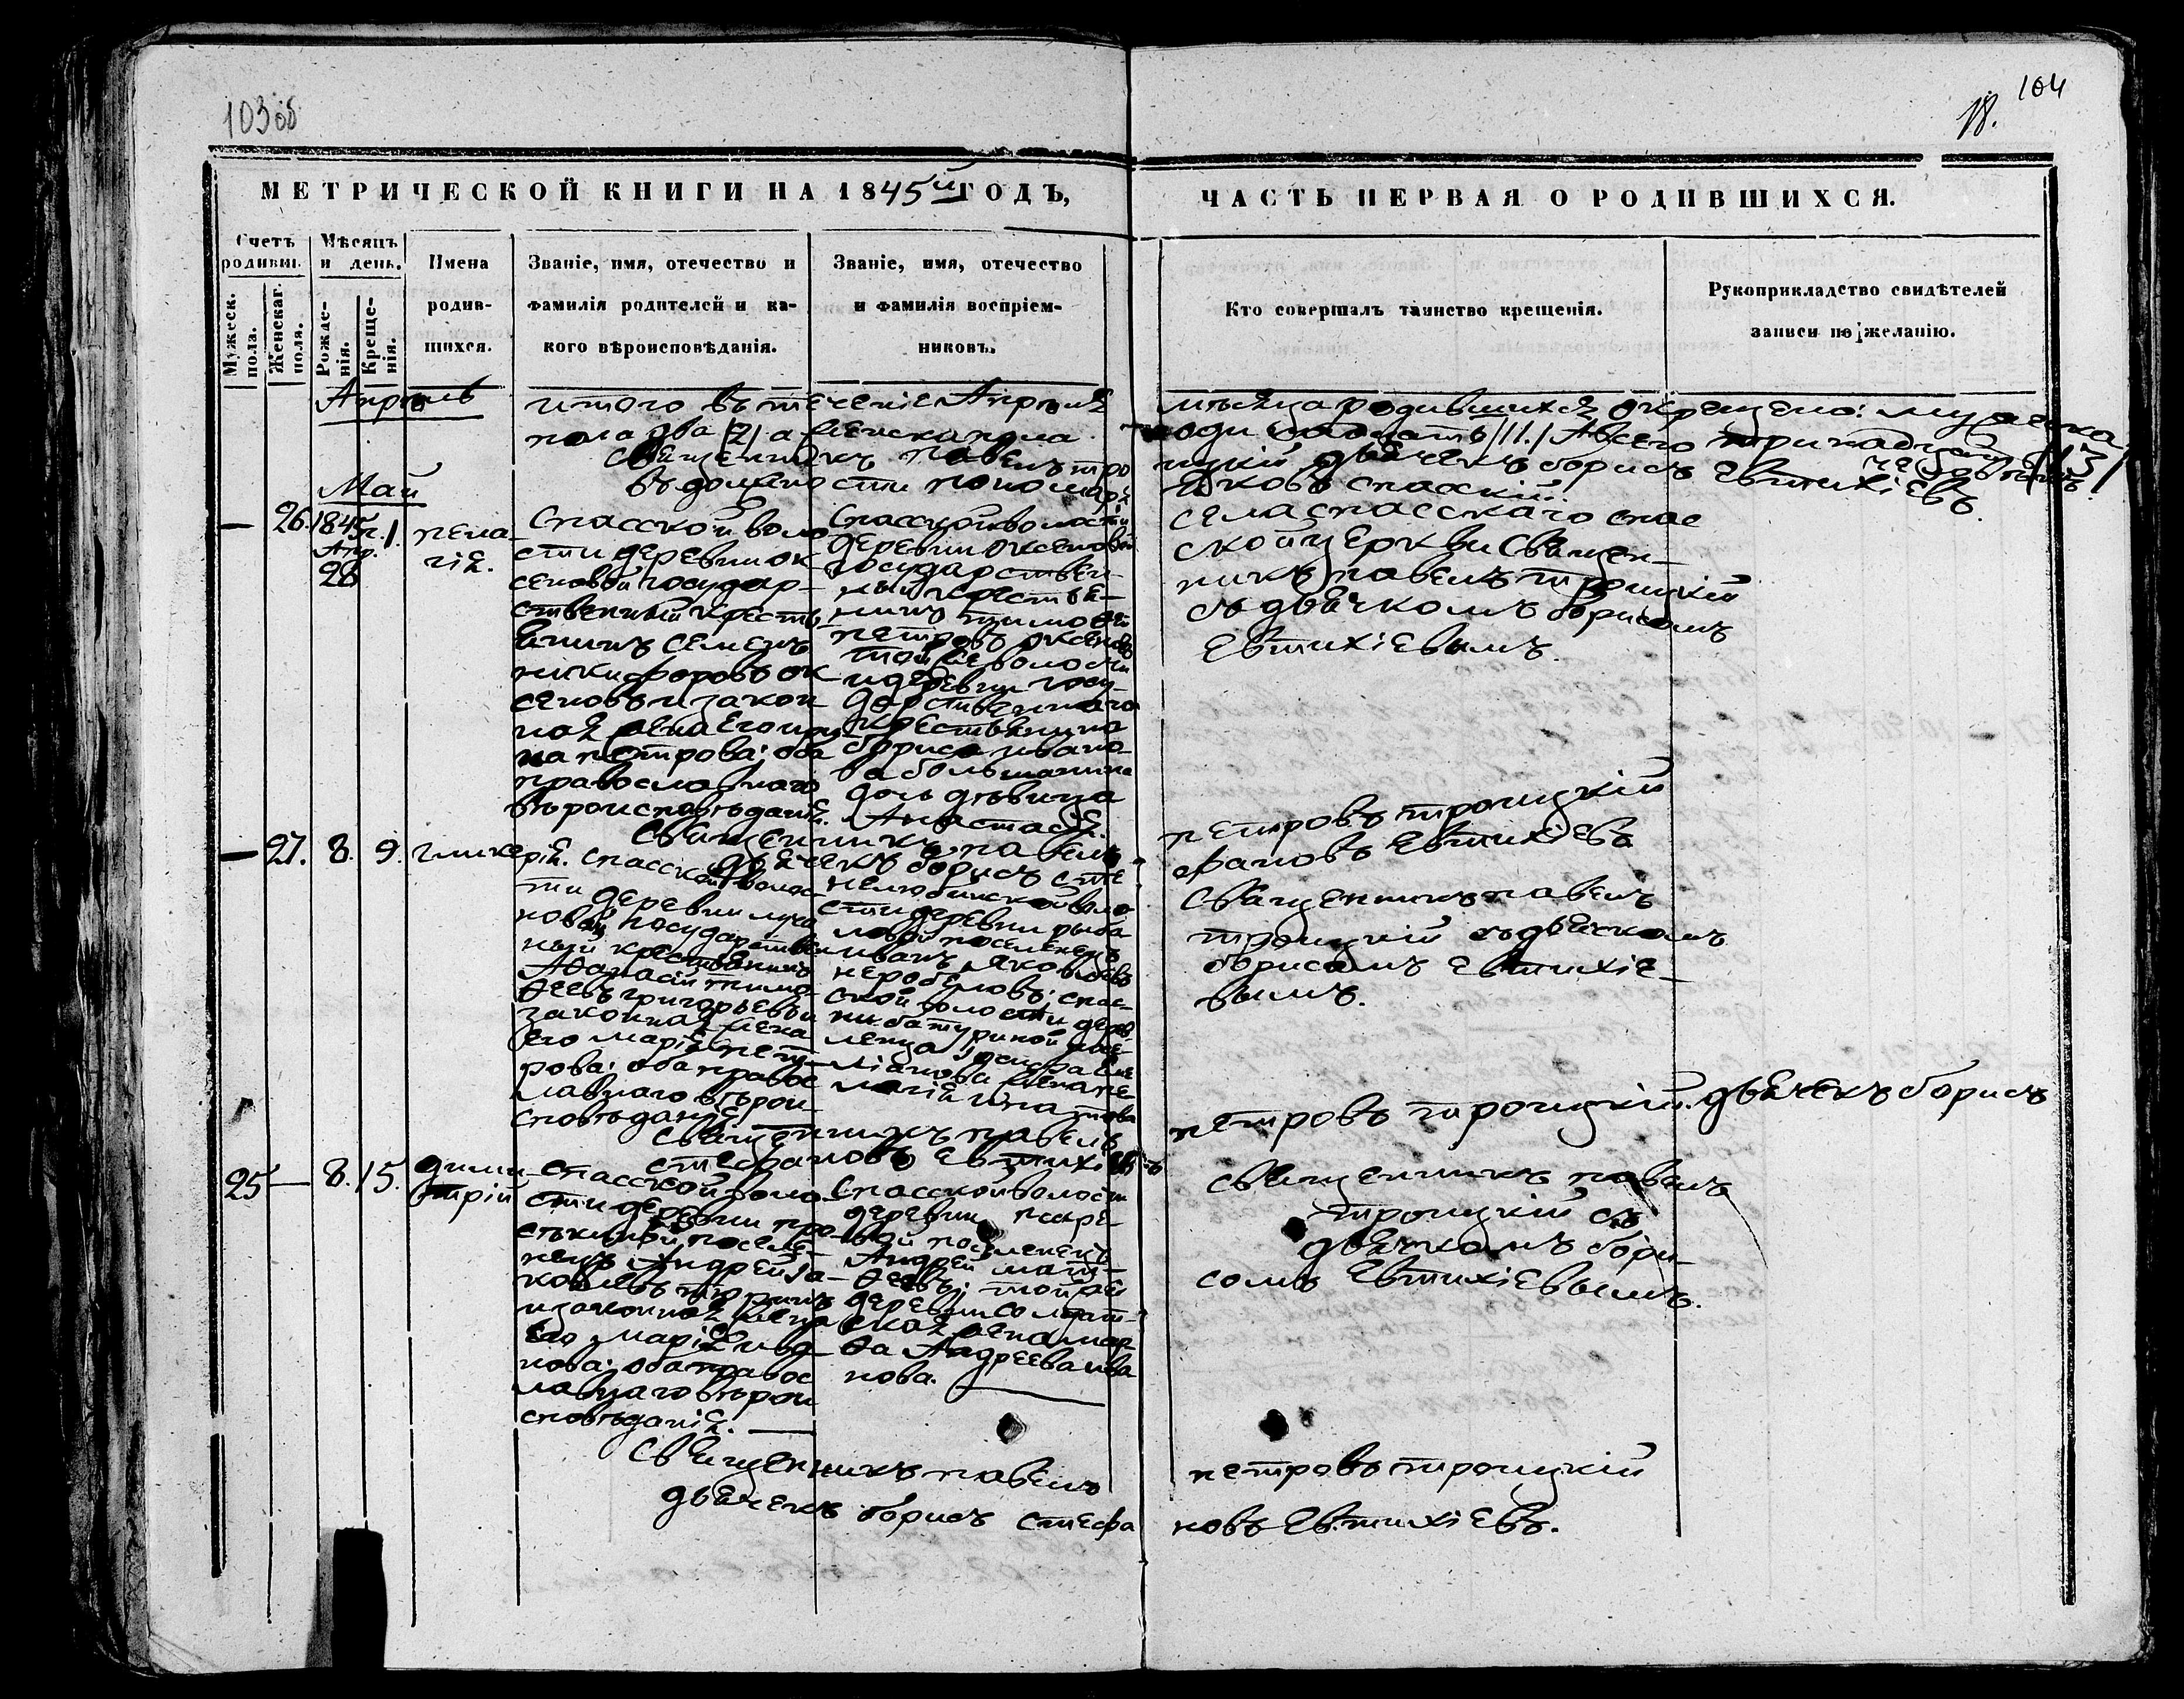 103об
18.
104
МЕТРИЧЕСКОЙ КНИГИ НА 1845й ГОДЪ,
ЧАСТЬ ПЕРВАЯ О РОДИВШИХСЯ.
Счетъ родивш.
Мужеск. пола.
Женскаг. пола.
Мѣсяцъ и день.
Рожде-
нія.
Креще-
нія.
Имена
родив-
шихся.
Званіе, имя, отечество и
фамилія родителей и ка-
кого вѣроисповѣданія.
Званіе, имя, отечество
и фамилія воспріем-
никовъ.
Кто совершалъ таинство крещенія.
Рукоприкладство свидѣтелей
записи по желанію.
Апрѣль
итого въ теченіе Апрѣля мѣсяца родившихся окрещено: мужска
пола два /2/ а женска пола одинадцать /11./ Авсего тринадцать /13/
человѣкъ.
Священникъ павелъ троицкій дьячекъ борисъ Евтихіевъ.
въ должности пономаря Яковъ спасскій.
Май
— 26. 1845г. Апр. 28 1.
пела-
гія.
Спасской воло-
сти деревни Ок-
сеновой государ-
ственный кресть-
янинъ Семенъ
никифоровъ ок-
сеновъ и закон-
ная жена его ири-
на петрова; оба
православнаго
вѣроисповѣданія.
Спасской волости
деревни Оксеновой
государствен-
ный крестья-
нинъ тимоѳей
петровъ оксеновъ
той же волости
и деревни госу-
дарственнаго
крестьянина
бориса ивано-
ва большанина
дочь дѣвица
Анастасія.
села спасскаго спас-
ской церкви священ-
никъ павелъ троицкій
съ дьячкомъ борисомъ
Евтихіевымъ.
Священникъ павелъ петровъ троицкій
дьячекъ борисъ стефановъ Евтихіевъ
— 27. 8. 9.
гликерія.
спасской волос-
ти деревни
новой государствен-
ный крестьянинъ
Аѳанасій тимо-
ѳеевъ григорьевъ и
законная жена
его марія пет-
рова; оба правос-
лавнаго вѣрои-
сповѣданія.
нелюбинской воло-
сти деревни рыба-
ловой поселенецъ
иванъ Яковлевъ
; спас-
ской волости дерев-
ни батуриной посе-
ленца
жена пе-
лагія игнатова
священникъ павелъ
троицкій съ дьячкомъ
борисомъ Евтихіе-
вымъ.
Священникъ павелъ петровъ троицкій. дьячекъ борисъ
стефановъ Евтихіевъ
25 — 8. 15.
дими-
трій
спасской воло-
сти деревни про-
скиной поселе-
нецъ Андрей Яа-
ковлевъ тюринъ
и законная жена
его марія ива-
нова; оба правос-
лавнаго вѣрои-
сповѣданія.
спасской волости
деревни
поселенецъ
Андрей мат-
ѳеевъ; той же
деревни солдат-
ская жена мар-
ѳа Андреева ива-
нова.
священникъ павелъ
троицкій съ
дьячкомъ бори-
сомъ Евтихіевымъ.
Священникъ павелъ петровъ троицкій
дьячекъ борисъ стефановъ Евтихіевъ.